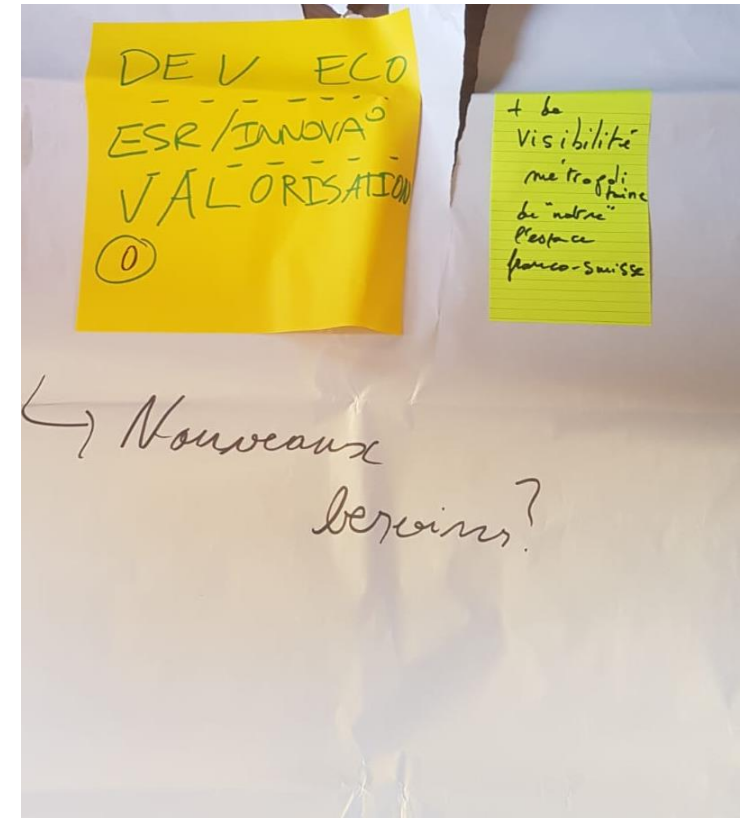 DEV ECO
ESR/INNOVA°
VALORISATION
0
+ de
visibilité
métropolitaine
de "notre"
l'espace
franco-suisse
↳ Nouveaux
besoins?